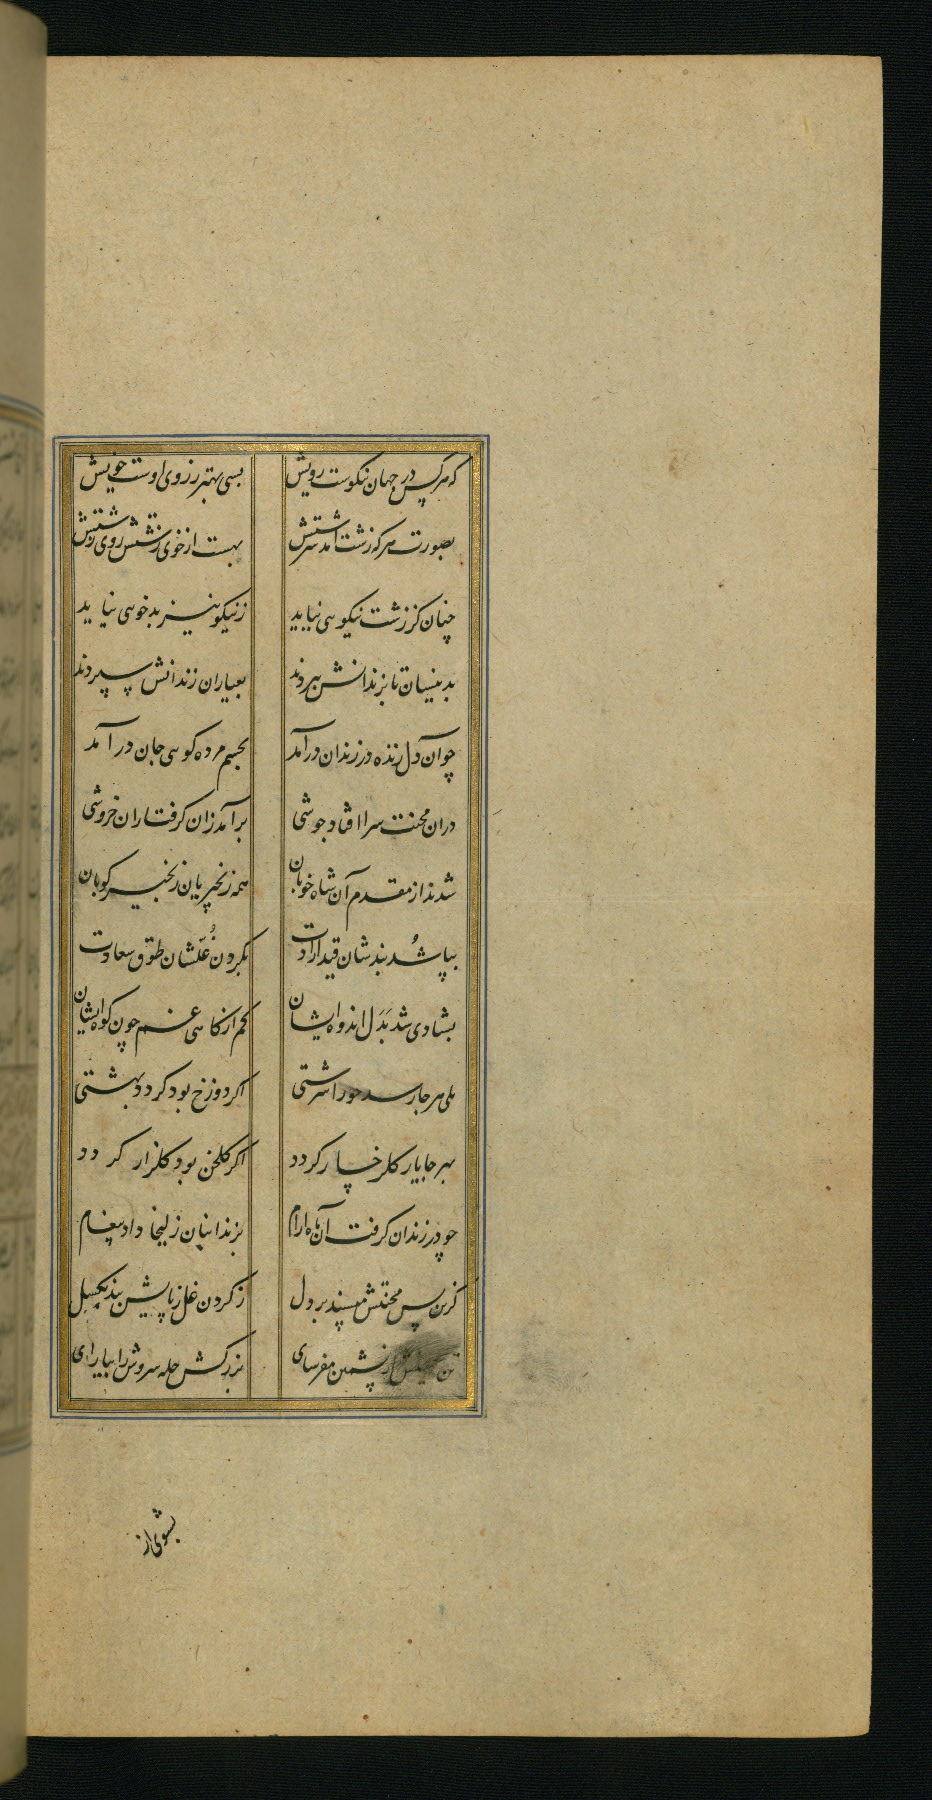 که هرکس در جهان نکوست رویش بسی بهتر ز روی اوست خویش
بصورت هرکه زشت آمد سرشتش بهست از خوی زشتش روی زشتش
چنان کز زشت نیکویی نیاید ز نیکو نیز بدخویی نیاید
بدینسان تا بزندانش ببردند بعیاران زندانش سپردند
چو آن دل زنده در زندان درآمد بجسم مرده گویی جان درآمد
دران محنت سرا افتاد جوشی برآمد زان گرفتاران خروشی
شدند از مقدم آن شاه خوبان همه زنجیریان زنجیر کوبان
بپا شد بندشان قید ارادت بگردن غلشان طوق سعادت
بشادی شد بدل اندوه ایشان کم از کاهی غم چون کوه ایشان
بلی هر جا رسد حورا سرشتی اگر دوزخ بود گردد بهشتی
بهر جا یار گلرخسار گردد اگر گلخن بود گلزار گردد
چو در زندان گرفت آن ماه آرام بزندانبان زلیخا داد پیغام
کزین پس محنتش مپسند بر دل ز گردن غل ز پایش بند بگسل
تن سیمینش از پشمین مفرسای بزرکش حله سروش را بیارای
بشوی از